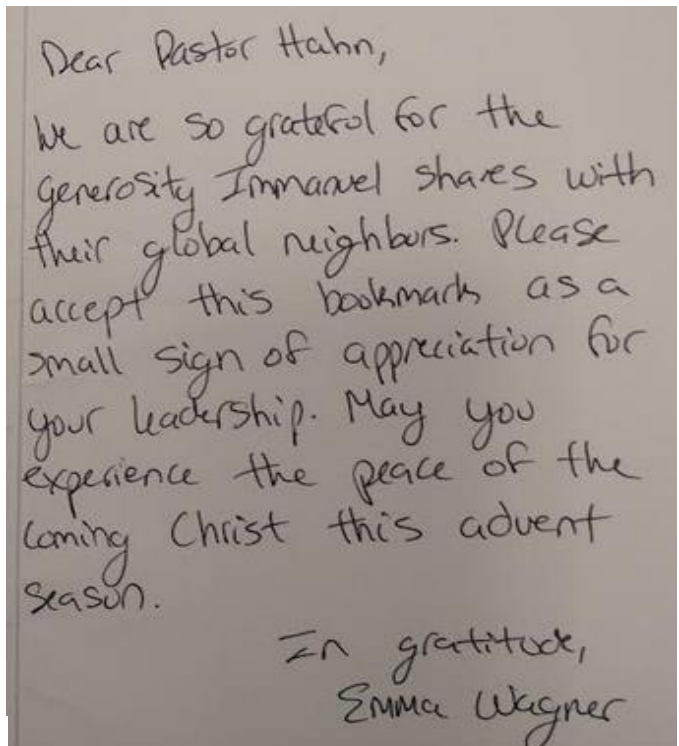 Dear Pastor Hahn,
We are so grateful for the
generosity Immanuel shares with
their global neighbors. Please
accept this bookmark as a
small sign of appreciation for
your leadership. May you
experience the peace of the
coming Christ this advent
season.
In gratitude,
Emma Wagner